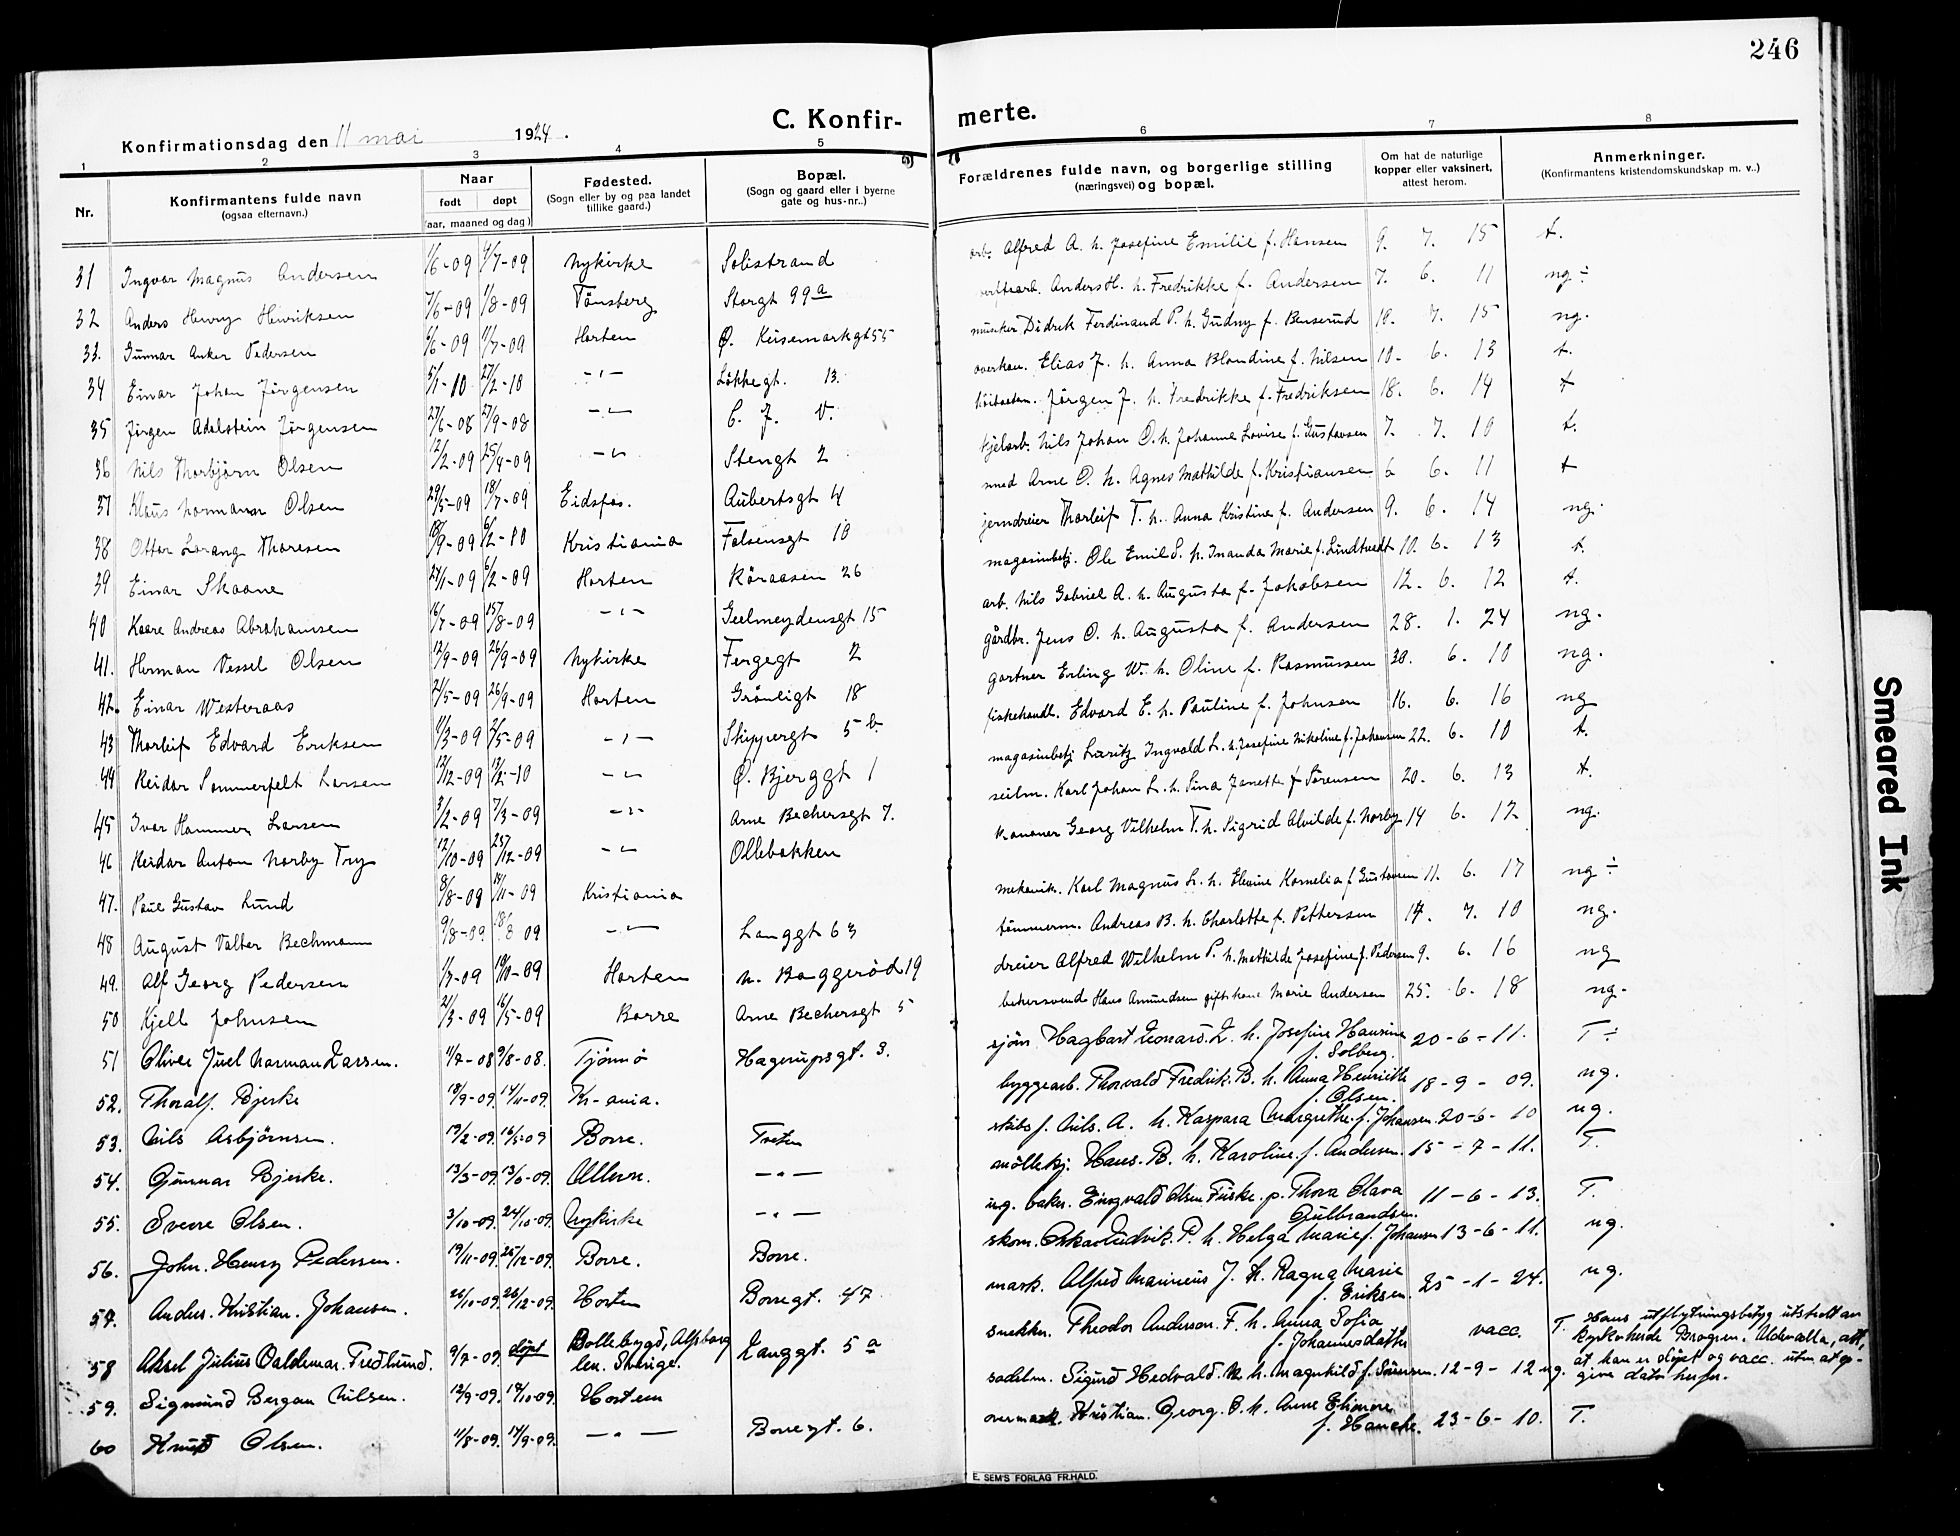 246
C. Konfir- merte.
Konfirmationsdag den 11 mai 1924.
1 2 3 4 5 6 7 8
Nr.
Konfirmantens fulde navn
(ogsaa efternavn.)
Naar
født døpt
(aar, maaned og dag)
Fødested.
(Sogn eller by og paa landet
tillike gaard.)
Bopæl.
(Sogn og gaard eller i byerne
gate og hus-nr..)
Forældrenes fulde navn, og borgerlige stilling
(næringsvei) og bopæl.
Om hat de naturlige
kopper eller vaksinert,
attest herom.
Anmerkninger.
(Konfirmantens kristendomskundskap m. v..)
31 Ingvar Magnus Andersen 1/6-09 4/7-09 Nykirke Solistrand arb. Alfred A. h. Josefine Emilie f. Hansen 9. 7. 15 t.
32 Anders Henry Henriksen 7/6-09 1/8-09 Tønsberg Storgt 99a Anders H. h. Fredrikke f. Andersen 7. 6. 11 ng ÷
33. Gunnar Anker Pedersen /6-09 11/7-09 Horten Ø. Keisemarkgt 55 musiker Didrik Ferdinand P. h. Gudny f. Benserud 18. 7. 15 ng.
34 Einar Johan Jörgensen 5/1-10 27/2-10 -"- Løkkegt. 13. Elias J. h. Anna Blondine f. Nilsen 10. 6. 13 t.
35 Jörgen Adelstein Jörgensen 27/6-08 27/9-08 -"- C. J. V. Jörgen J. h. Fredrikke f. Fredriksen 18. 6. 14 t
36 Nils Thorbjörn Olsen 12/2-09 25/4-09 -"- Stengt 2 kjelarb. Nils Johan O. h. Johanne Lovise f. Gustavsen 7. 7. 10 t.
37 Klaus Normann Olsen 29/5-09 18/7-09 Eidsfos. Aubertsgt 4 smed Arne O. h. Agnes Mathilde f. Kristiansen 6 6. 11 t
38 Ottar Lorang Thoresen 18/9-09 6/2-10 Kristiania Falsensgt 10 jerndreier Thorleif T. h. Anna Kristine f. Andersen 9. 6. 14 ng.
39 Einar Skaane 24/1-09 6/2-09 Horten Röraasen 26 magasinbetj. Ole Emil S. h. Inanda Marie f. Lindtvedt 10. 6. 13 t.
40 Kaare Andreas Abrahamsen 16/7-09 15/8-09 -"- Geelmeydensgt 15 arb. Nils Gabriel A. h. Augusta f. Jakobsen 12. 6. 12 t.
41. Herman Vessel Olsen 12/9-09 26/9-09 Nykirke Fergegt 2 gårdbr. Jens O. h. Augusta f. Andersen 28. 1. 24 ng.
42. Einar Westeraas 21/5-09 26/9-09 Horten Grönligt 18 gartner Erling W. h. Oline f. Rasmussen 30. 6. 10 ng.
43 Thorleif Edvard Eriksen 11/3-09 2/5-09 -"- Skippergt 5b fiskehandl. Edvard E. h. Pauline f. Johnsen 16. 6. 16 ng
44 Reidar Sommerfelt Larsen 12/12-09 13/2-10 -"- Ø. Bjerggt 1 magasinbetj. Lauritz Ingvald L. h. Josefine Nikoline f. Johansen 22. 6. 10 t.
45 Ivar Hammer Larsen 3/2-09 7/3-09 -"- Arne Bechersgt 7. seilm. Karl Johan L. h. Sina Janette f Sörensen 20. 6. 13 t.
46 Reidar Anton Norby Try 12/10-09 25/12-09 -"- Ollebakken kanoner Georg Vilhelm T. h. Sigrid Alvilde f. Norby 14 6. 12 ng.
47. Paul Gustav Lund 8/8-09 14/11-09 Kristiania mekanik. Karl Magnus L. h. Elevine Kornelia f Gustavsen 11. 6. 17 ng ÷
48 August Valter Bechmann 9/8-09 18/8 09 -"- Langgt 63 tömmerm. Andreas B. h. Charlotte f. Pettersen 14. 7. 10 ng.
49. Alf Georg Pedersen 1/7-09 10/10-09 Horten N. Baggeröd 19 dreier Alfred Wilhelm P. h. Mathilde Josefine f. Pedersen 9. 6. 16 ng
50 Kjell Johnsen 21/3-09 16/5-09 Borre Arne Bechersgt 5 bakersvend Hans Amundsen gift hane Marie Andersen 25. 6. 18 ng.
51 Oliver Juel Norman Larsen. 11/7-08 9/8-08. Tjömö Hagerupsgt. 3. sjöm. Hagbart Leonard. L. h. Josefine Hansine
f. Solberg. 20-6-11. T ÷
52. Thoralf. Bjerke 18/9-09. 14/11-09. Kr-ania. byggearb. Thorvald Fredrik. B. h. Anna Henriette
f. Olsen. 18-9-09. ng.
53. Nils Asbjörnsen. 19/2-09. 16/5-09 Borre. Tveten skibs f. Nils. A. h. Kaspara Margrethe. f. Johansen. 20-6-10 ng.
54. Gunnar Bjerke. 13/3-09. -"- möllekj. Hans. B. h. Karoline. f. Andersen. 15-7-11. T.
55. Sverre Olsen. 3/10-09. 24/10-09. Nykirke -"- ug. baker. Engvald Olsen Fuske. p. Thora Olava
Gulbrandsen. 11-6-13. T.
56. John. Henry Pedersen. 19/11-09. 25/12-09. Borre. Borre. skom. Oskar Ludvik. P. h. Helga Marie f. Johansen 13-6-11. ng.
57. Anders. Kristian. Johansen. 26/10-09. 26/12-09. Horten Borregt. 47 mask. Alfred Marinius J. h. Ragna Marie
f. Eriksen. 25-1-24. ng.
58 Aksel Julius Valdemar. Fredlund. 9/7-09 döpt Bollebygd, Alfsborg
len. Sverige. Langgt. 5a snekker. Theodor Anderson. F. h. Anna Sofia
f. Johannesdatter vacc. T. Hans utflytningsbetyg utstedt av
kyrkoherde Brogren. Udevalla, att,
at han er döpt og vacc. uten at op-
give dato herfor.
59. Sigmund Bergan Nilsen. 12/9-09. 17/10-09. Horten sadelm. Sigurd Hedvald. N. h. Magnhild f. Sörensen. 12-9-12 ng.
60 Knut Olsen. 11/8-09. 19/9-09. -"- Borregt. 6. overmask. Kristian. Georg. O. h. Anne Elinore
f. Hancke. 23-6-10. T.
E. SEM'S FORLAG FR.HALD.
Smeared Ink